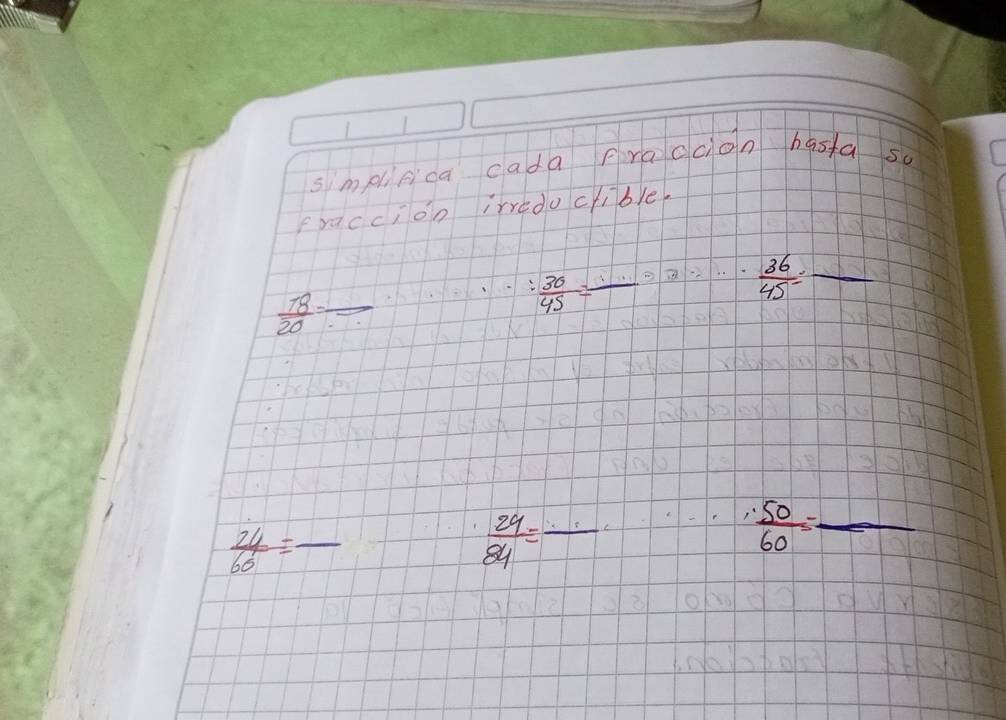 simplifica cada Fracción hasta su
Fracción irreductible.
18/20 = 30/45 = 36/45 =
24/66 = 24/84 = 50/60 =